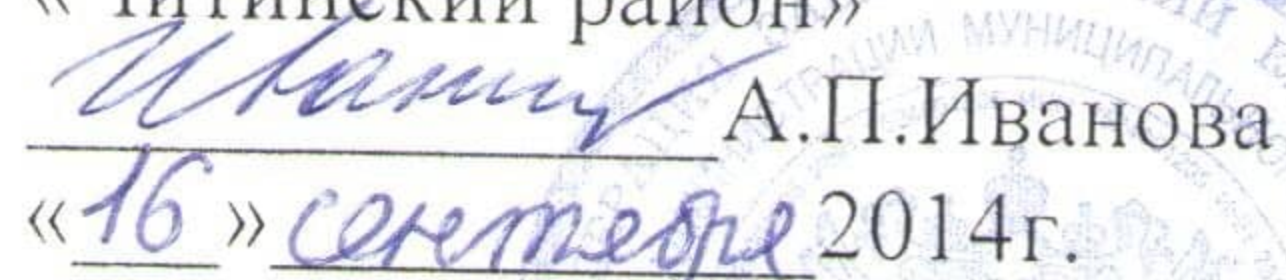 «Читинский район»
А.П.Иванова
«16» сентября 2014г.